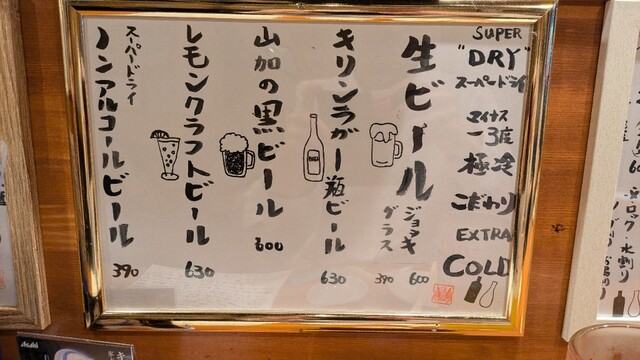 SUPER
"DRY"
スーパードライ
マイナス
-3度
極冷
こだわり
EXTRA
COLD
生ビール
ジョッキ 600
グラス 390
キリンラガー瓶ビール
630
山加の黒ビール
600
レモンクラフトビール
630
スーパードライ
ノンアルコールビール
390
ロック
水割り
Asahi